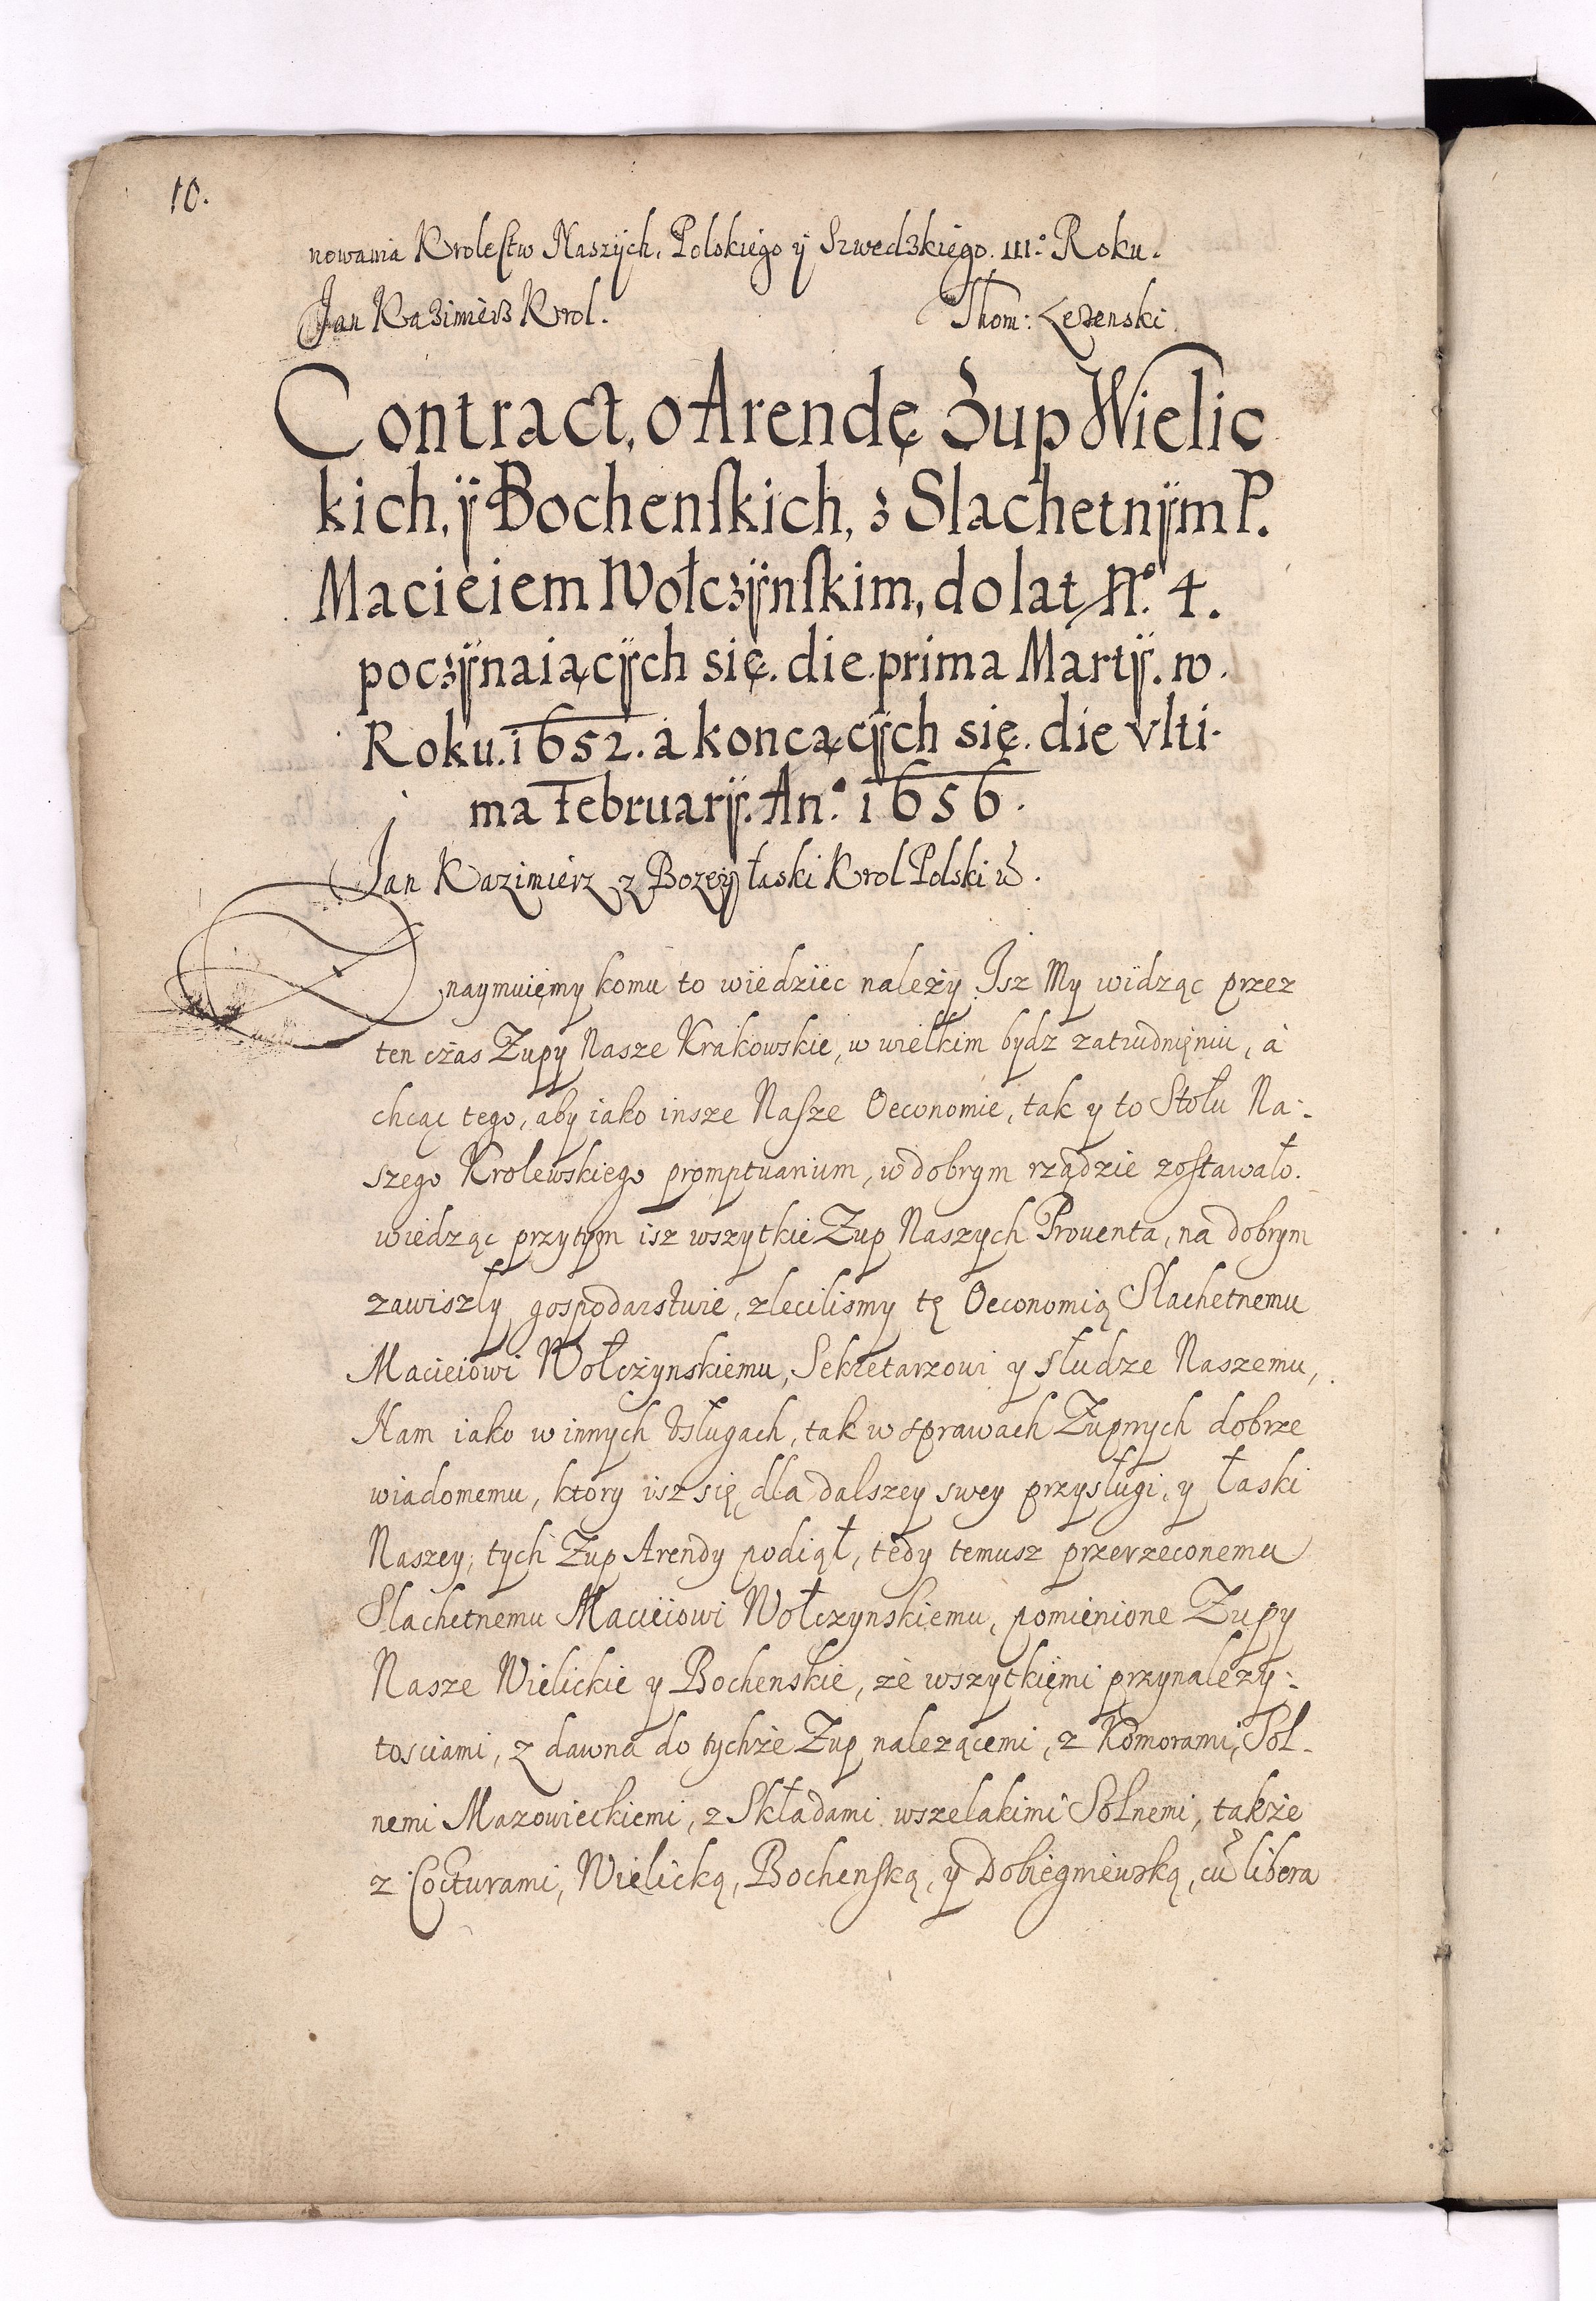 10.
nowania Krolestw Naszÿch. Polskiego ÿ Szwedzkiego. III.° Roku.
Jan Kazimierz Krol. Thom: Lezenski
Contract, o Arendę Żup Wielic
kich, ÿ Bochenskich, z Slachetnÿm P.
Macieiem Wołczÿnskim, do lat N.° 4.
poczÿnaiącÿch się. die prima Martÿ. w.
Roku. 1652. a koncącÿch się. die vlti-
ma Februarÿ. An.° 1656.
Jan Kazimierz z Bozey łaski Krol Polski
Oznaymuięmy komu to wiedziec należy Jsz My widząc przez
ten czas Zupy Nasze Krakowskie, w wielkim bydz zatrudnięniu, à
chcąc tego, aby iako insze Nasze Oeconomie, tak y to Stołu Na-
szego Krolewskiego promptuarium, w dobrym rządzie zostawało.
wiedząc przytym isz wszytkie Zup Naszych Prouenta, na dobrym
zawiszły gospodarstwie, zlecilismy tę Oeconomią Slachetnemu
Macieiowi Wołczynskiemu, Sekretarzowi y słudze Naszemu,
Nam iako w innych Vsługach, tak w sprawach Zupnych dobrze
wiadomemu, ktory isz się dla dalszey swey przysługi, y łaski
Naszey, tych Zup Arendy podiął, tedy temusz przerzeconemu
Slachetnemu Macieiowi Wołczynskiemu, pomienione Zupy
Nasze Wielickie y Bochenskie, ze wszytkięmi przynalezy-
tosciami, z dawna do tychże Zup nalezącemi, z Komorami, Sol-
nemi Mazowieckiemi, z Składami wszelakimi Solnemi, także
z Cocturami, Wielicką, Bochenską, y Dobiegniewską, cu libera